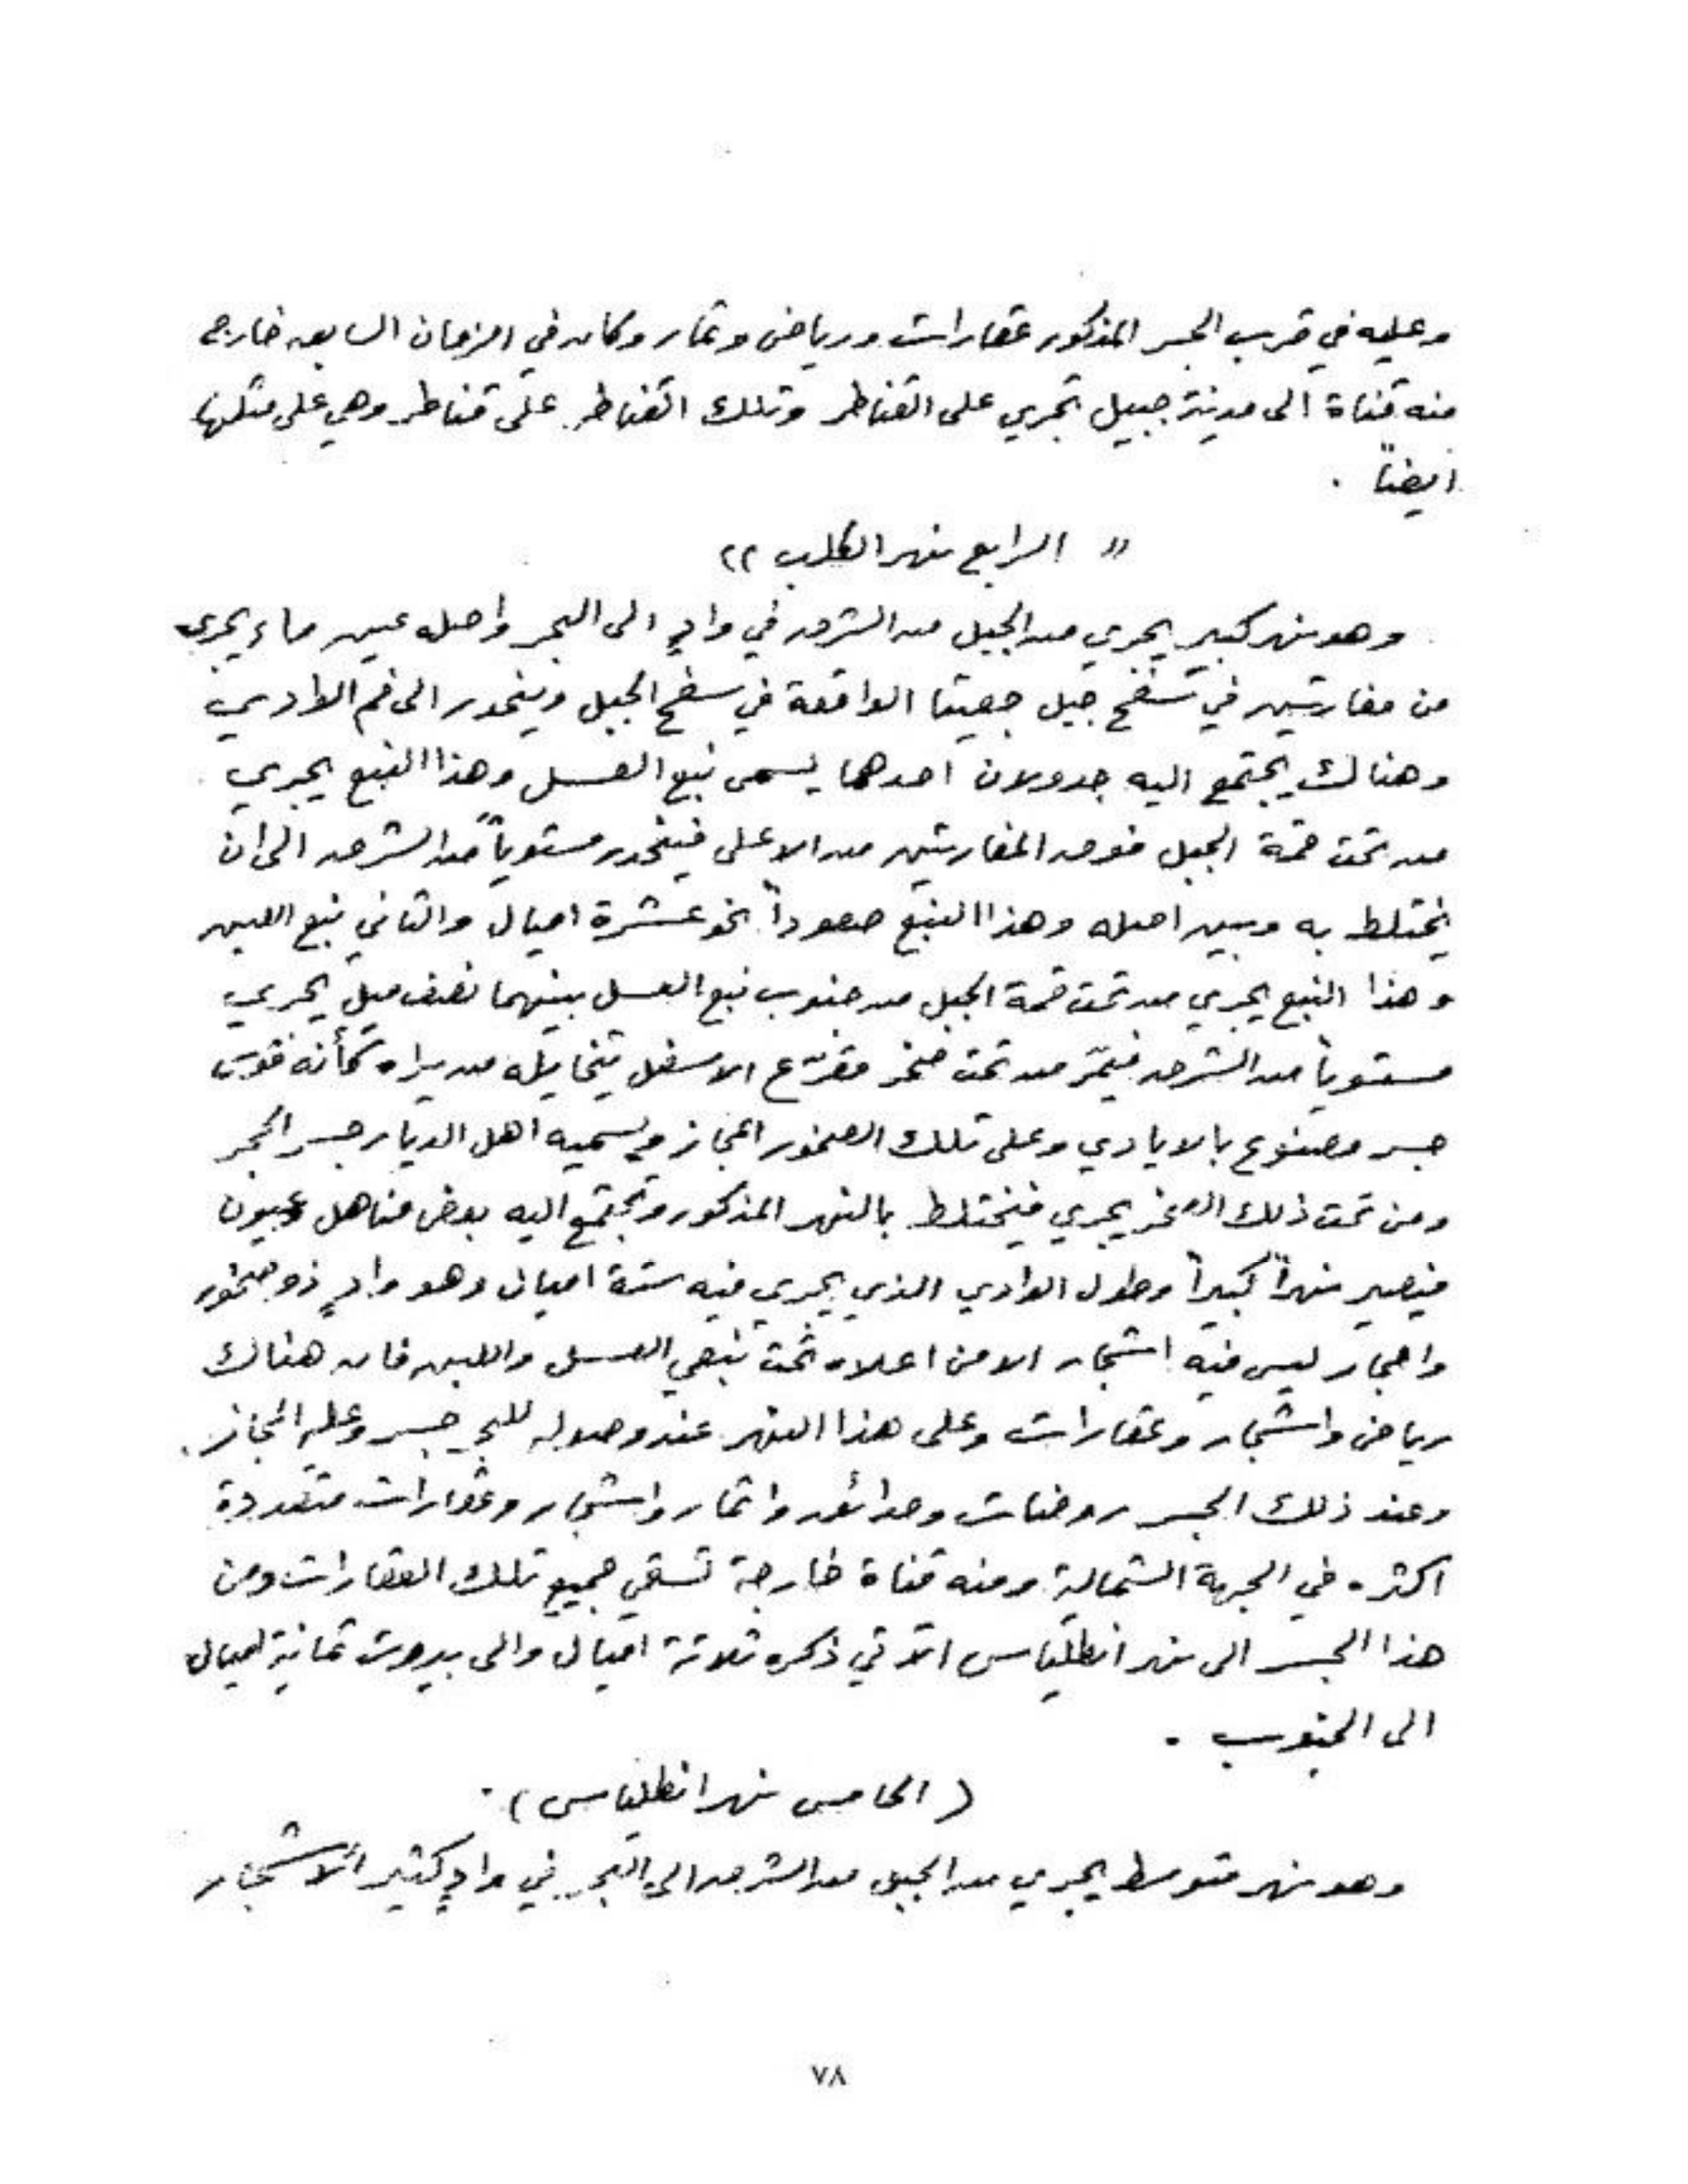 وعليه في قرب الجسر المذكور عقارات ورياض وثمار وكان في الزمان السابق خارج
منه قناة الى مدينة جبيل تجري على القناطر وتلك القناطر على قناطر وهي على مثلها
ايضاً .
" الرابع نهر الكلب "
وهو نهر كبير يجري من الجبل من الشرق في وادٍ الى البحر واصله عين ماء يجري
من مغارتين في سفح جبل جعيتا الواقعة في سفح الجبل وينحدر الى فم الوادي
وهناك يجتمع اليه جدولان احدهما يسمى نبع العسل وهذا النبع يجري
من تحت قمة الجبل فوق المغارتين من الاعلى فينحدر مستوياً من الشرق الى ان
يختلط به وبين اصله وهذا النبع صعوداً نحو عشرة اميال والثاني نبع اللبن
وهذا النبع يجري من تحت قمة الجبل من جنوب نبع العسل بينهما نصف ميل يجري
مستوياً من الشرق فيمرّ من تحت صخر مفرّع الاسفل يتخايله من يراه كأنه قوس
جسر مصنوع بالايادي وعلى تلك الصخور المجاز ويسميه اهل الديار جسر الحجر
ومن تحت ذلك الصخر يجري فيختلط بالنهر المذكور وتجتمع اليه بعض مناهل وعيون
فيصير نهراً كبيراً وطول الوادي الذي يجري فيه ستة اميال وهو وادٍ ذو صخور
واحجار ليس فيه اشجار الا من اعلاه تحت نبعي العسل واللبن فان هناك
رياض واشجار وعقارات وعلى هذا النهر عند وصوله للبحر جسر وعليه المجاز .
وعند ذلك الجسر روضات وحدائق واثمار واشجار وعقارات متعددة
اكثره في الجهة الشمالية ومنه قناة خارجة تسقي جميع تلك العقارات ومن
هذا الجسر الى نهر انطلياس الآتي ذكره ثلاثة اميال والى بيروت ثمانية اميال
الى الجنوب .
( الخامس نهر انطلياس ) .
وهو نهر متوسط يجري من الجبل من الشرق الى البحر في وادٍ كثير الاشجار
٧٨